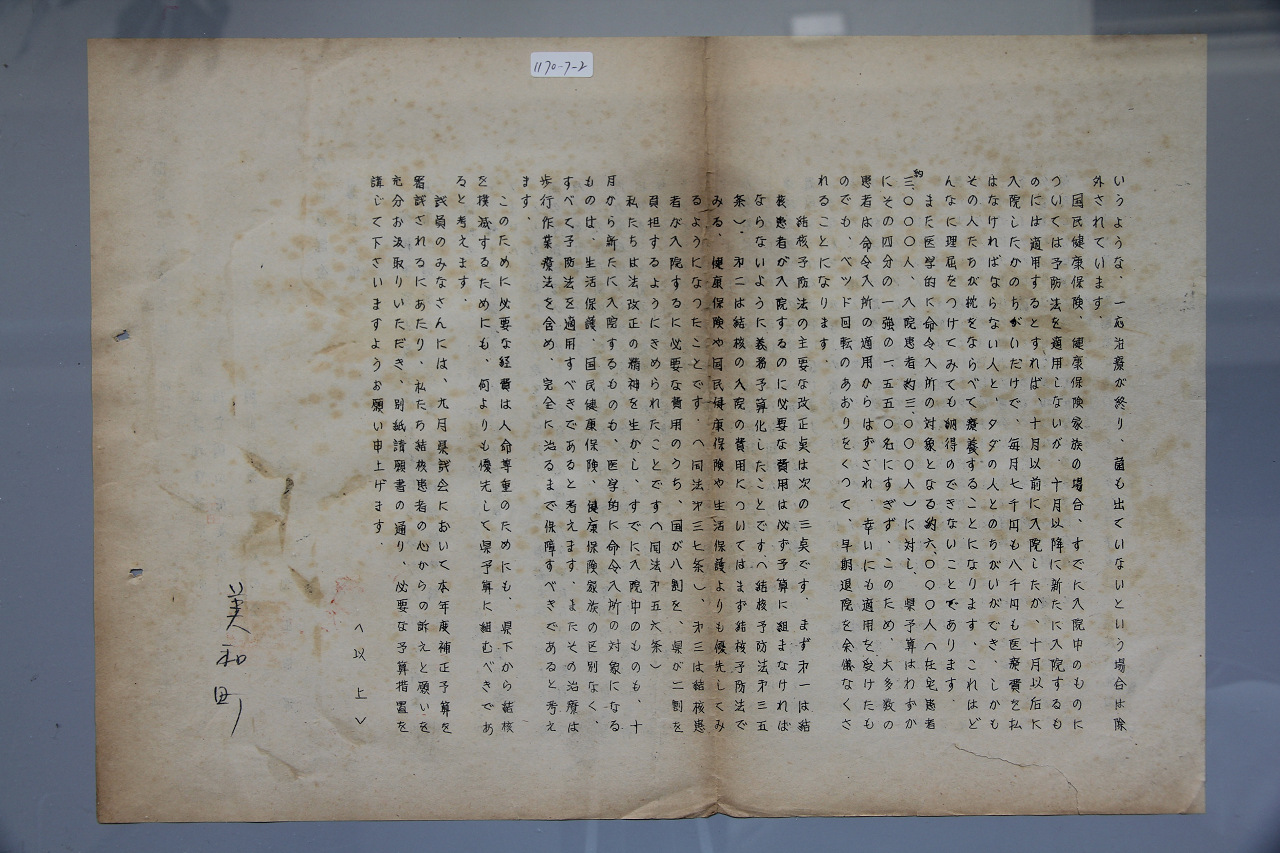 1170-7-2
いうような、一応治療が終り、菌も出ていないという場合は除
外されています。
国民健康保険、健康保険家族の場合、すでに入院中のものに
ついては予防法を適用しないが、十月以降に新たに入院するも
のには適用するとすれば、十月以前に入院したか、十月以后に
入院したかのちがいだけで、毎月七千円も八千円も医療費を払
はなければならない人と、タダの人とのちがいができ、しかも
その人たちが枕をならべて療養することになります。これはど
んなに理屈をつけてみても納得のできないことであります。
また医学的に命令入所の対象となる約六、〇〇〇人(在宅患者
約三、〇〇〇人、入院患者約三、〇〇〇人)に対し、県予算はわずか
にその四分の一強の一、五五〇名にすぎず、このため、大多数の
患者は命令入所の適用からはずされ、幸いにも適用を受けたも
のでも、ベッド回転のあおりをくって、早期退院を余儀なくさ
れることになります。
結核予防法の主要な改正点は次の三点です。まず才一は結
核患者が入院するのに必要な費用は必ず予算に組まなければ
ならないように義務予算化したことです(結核予防法才三五
条)、才二は結核の入院の費用についてはまず結核予防法で
みる、健康保険や国民健康保険や生活保護よりも優先してみ
るようになつたことです。(同法才三七条)、才三は結核患
者が入院するに必要な費用のうち、国が八割を、県が二割を
負担するようにきめられたことです(同法才五六条)
私たちは法改正の精神を生かし、すでに入院中のものも、十
月から新たに入院するものも、医学的に命令入所の対象になる
ものは、生活保護、国民健康保険、健康保険家族の区別なく、
すべて予防法を適用すべきであると考えます。またその治療は
歩行作業療法を含め、完全に治るまで保障すべきであると考え
ます。
このために必要な経費は人命尊重のためにも、県下から結核
を撲滅するためにも、何よりも優先して県予算に組むべきであ
ると考えます。
議員のみなさんには、九月県議会において本年度補正予算を
審議されるにあたり、私たち結核患者の心からの訴えと願いを
充分お汲取りいただき、別紙請願書の通り、必要な予算措置を
講じて下さいますようお願い申上げます。
<以上>
美和町